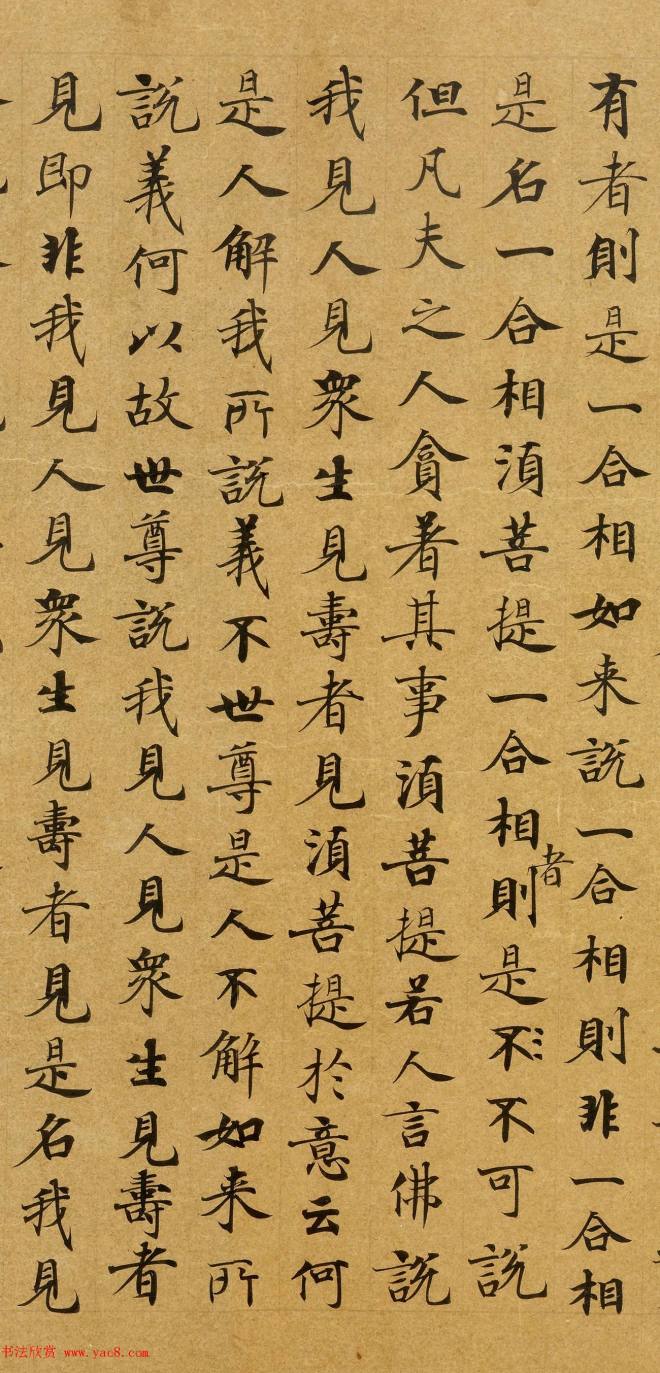 有者則是一合相如来說一合相則非一合相
是名一合相湏菩提一合相者則是不不可說
但凡夫之人貪著其事湏菩提若人言佛說
我見人見衆生見壽者見湏菩提於意云何
是人解我所說義不世尊是人不解如来所
說義何以故世尊說我見人見衆生見壽者
見即非我見人見衆生見壽者見是名我見
书法欣赏 www.yac8.com